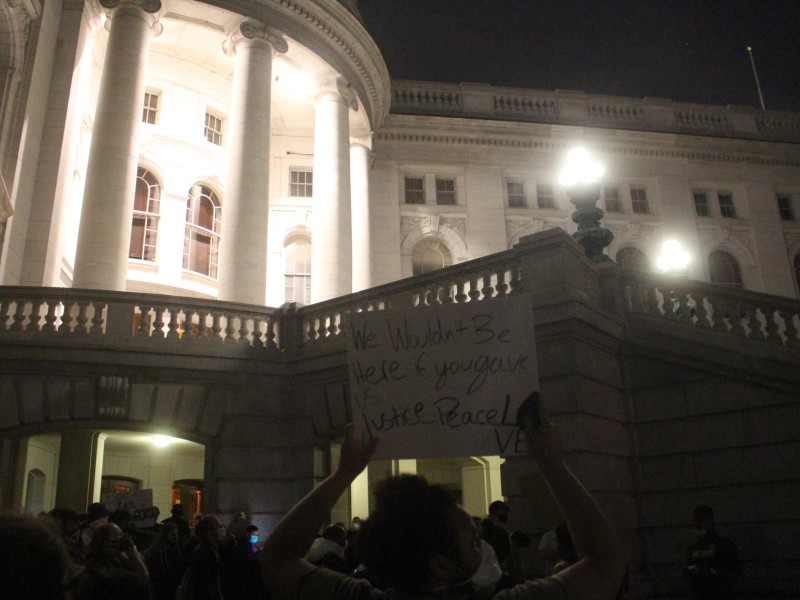 We Wouldn't Be
Here if you gave
us
Justice Peace LO
VE